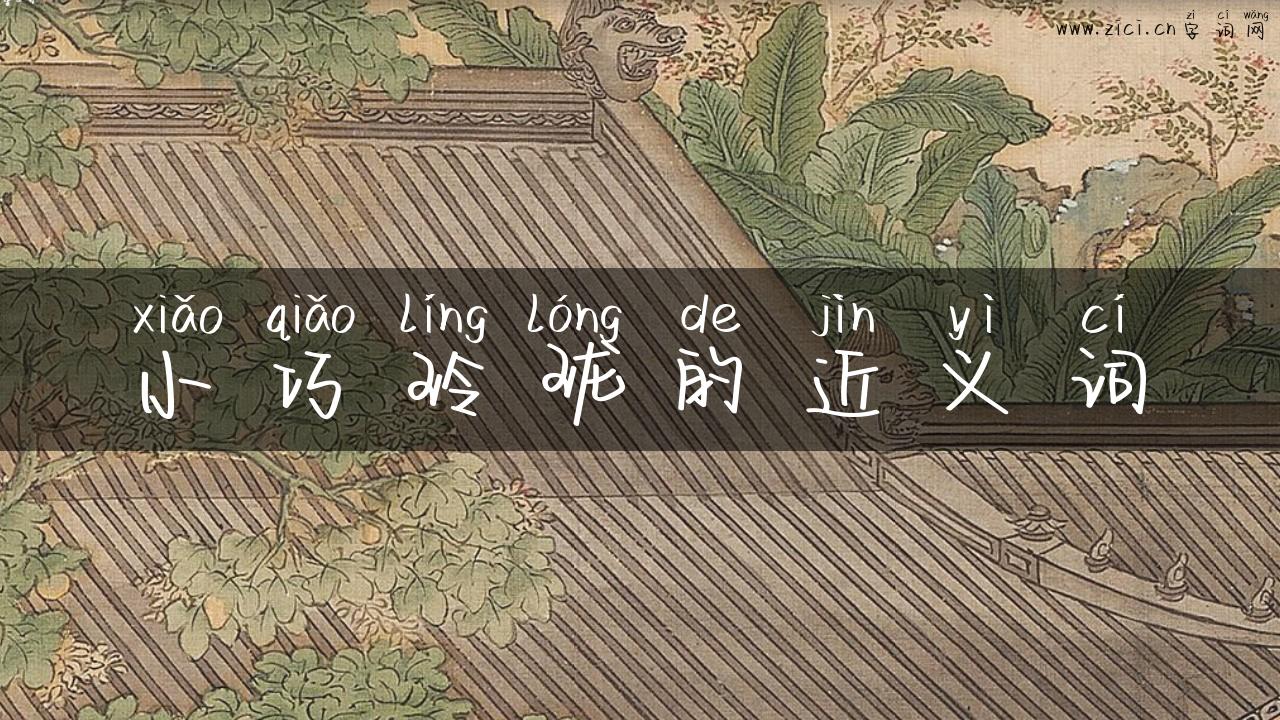 zì cí wǎng
www.zici.cn 字词网
xiǎo qiǎo líng lóng de jìn yì cí
小巧玲珑的近义词